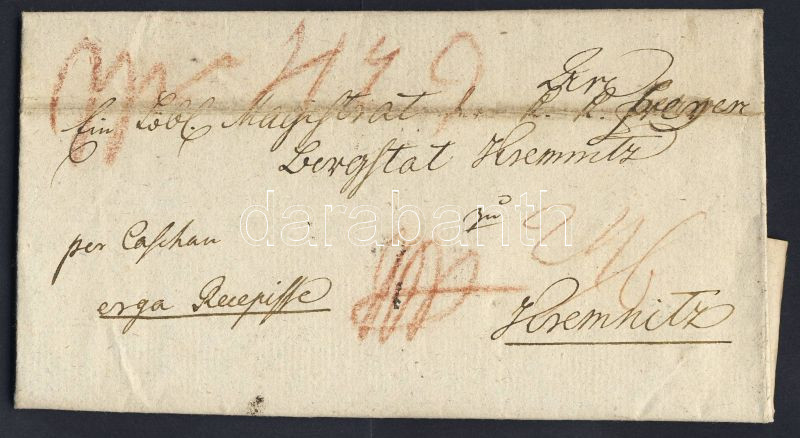 Ein Löbl. Magistrat der k. k. freyen
Bergstat Kremnitz
zu
per Caschau
erga Recepisse
Kremnitz
darabanth